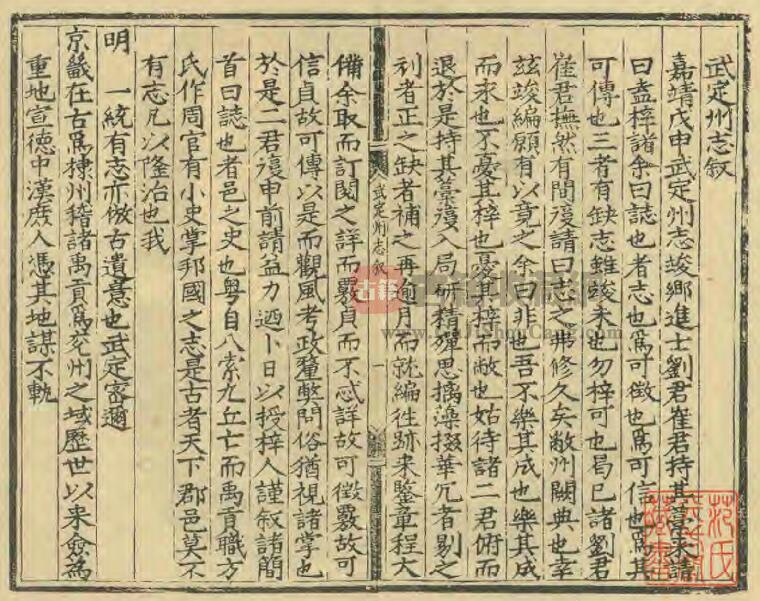 武定州志叙
嘉靖戊申武定州志竣鄉進士劉君崔君持其藁来請
曰盍梓諸余曰誌也者志也爲可徵也爲可信也爲其
可傳也三者有缺志雖竣未也勿梓可也曷已諸劉君
崔君撫然有間復請曰志之弗修久矣敝州闕典也幸
玆竣編願有以竟之余曰非也吾不樂其成也樂其成
而永也不憂其梓也憂其梓而敝也姑待諸二君俯而
退於是持其藁復入局研精殫思摛藻掇華冗者剔之
刓者正之缺者補之再逾月而就編徃跡来鑒章程大
武定州志叙
一
備余取而訂閱之詳而覈貞而不惑詳故可徵覈故可
信貞故可傳以是而觀風考政釐獘問俗猶視諸掌也
於是二君復申前請益力迺卜日以授梓人謹叙諸簡
首曰誌也者邑之史也粤自八索九丘亡而禹貢職方
氏作周官有小史掌邦國之志是古者天下郡邑莫不
有志凡以隆治也我
明一統有志亦倣古遺意也武定密邇
京畿在古爲棣州稽諸禹貢爲兖州之域歷世以来僉爲
重地宣德中漢庶人憑其地謀不軌